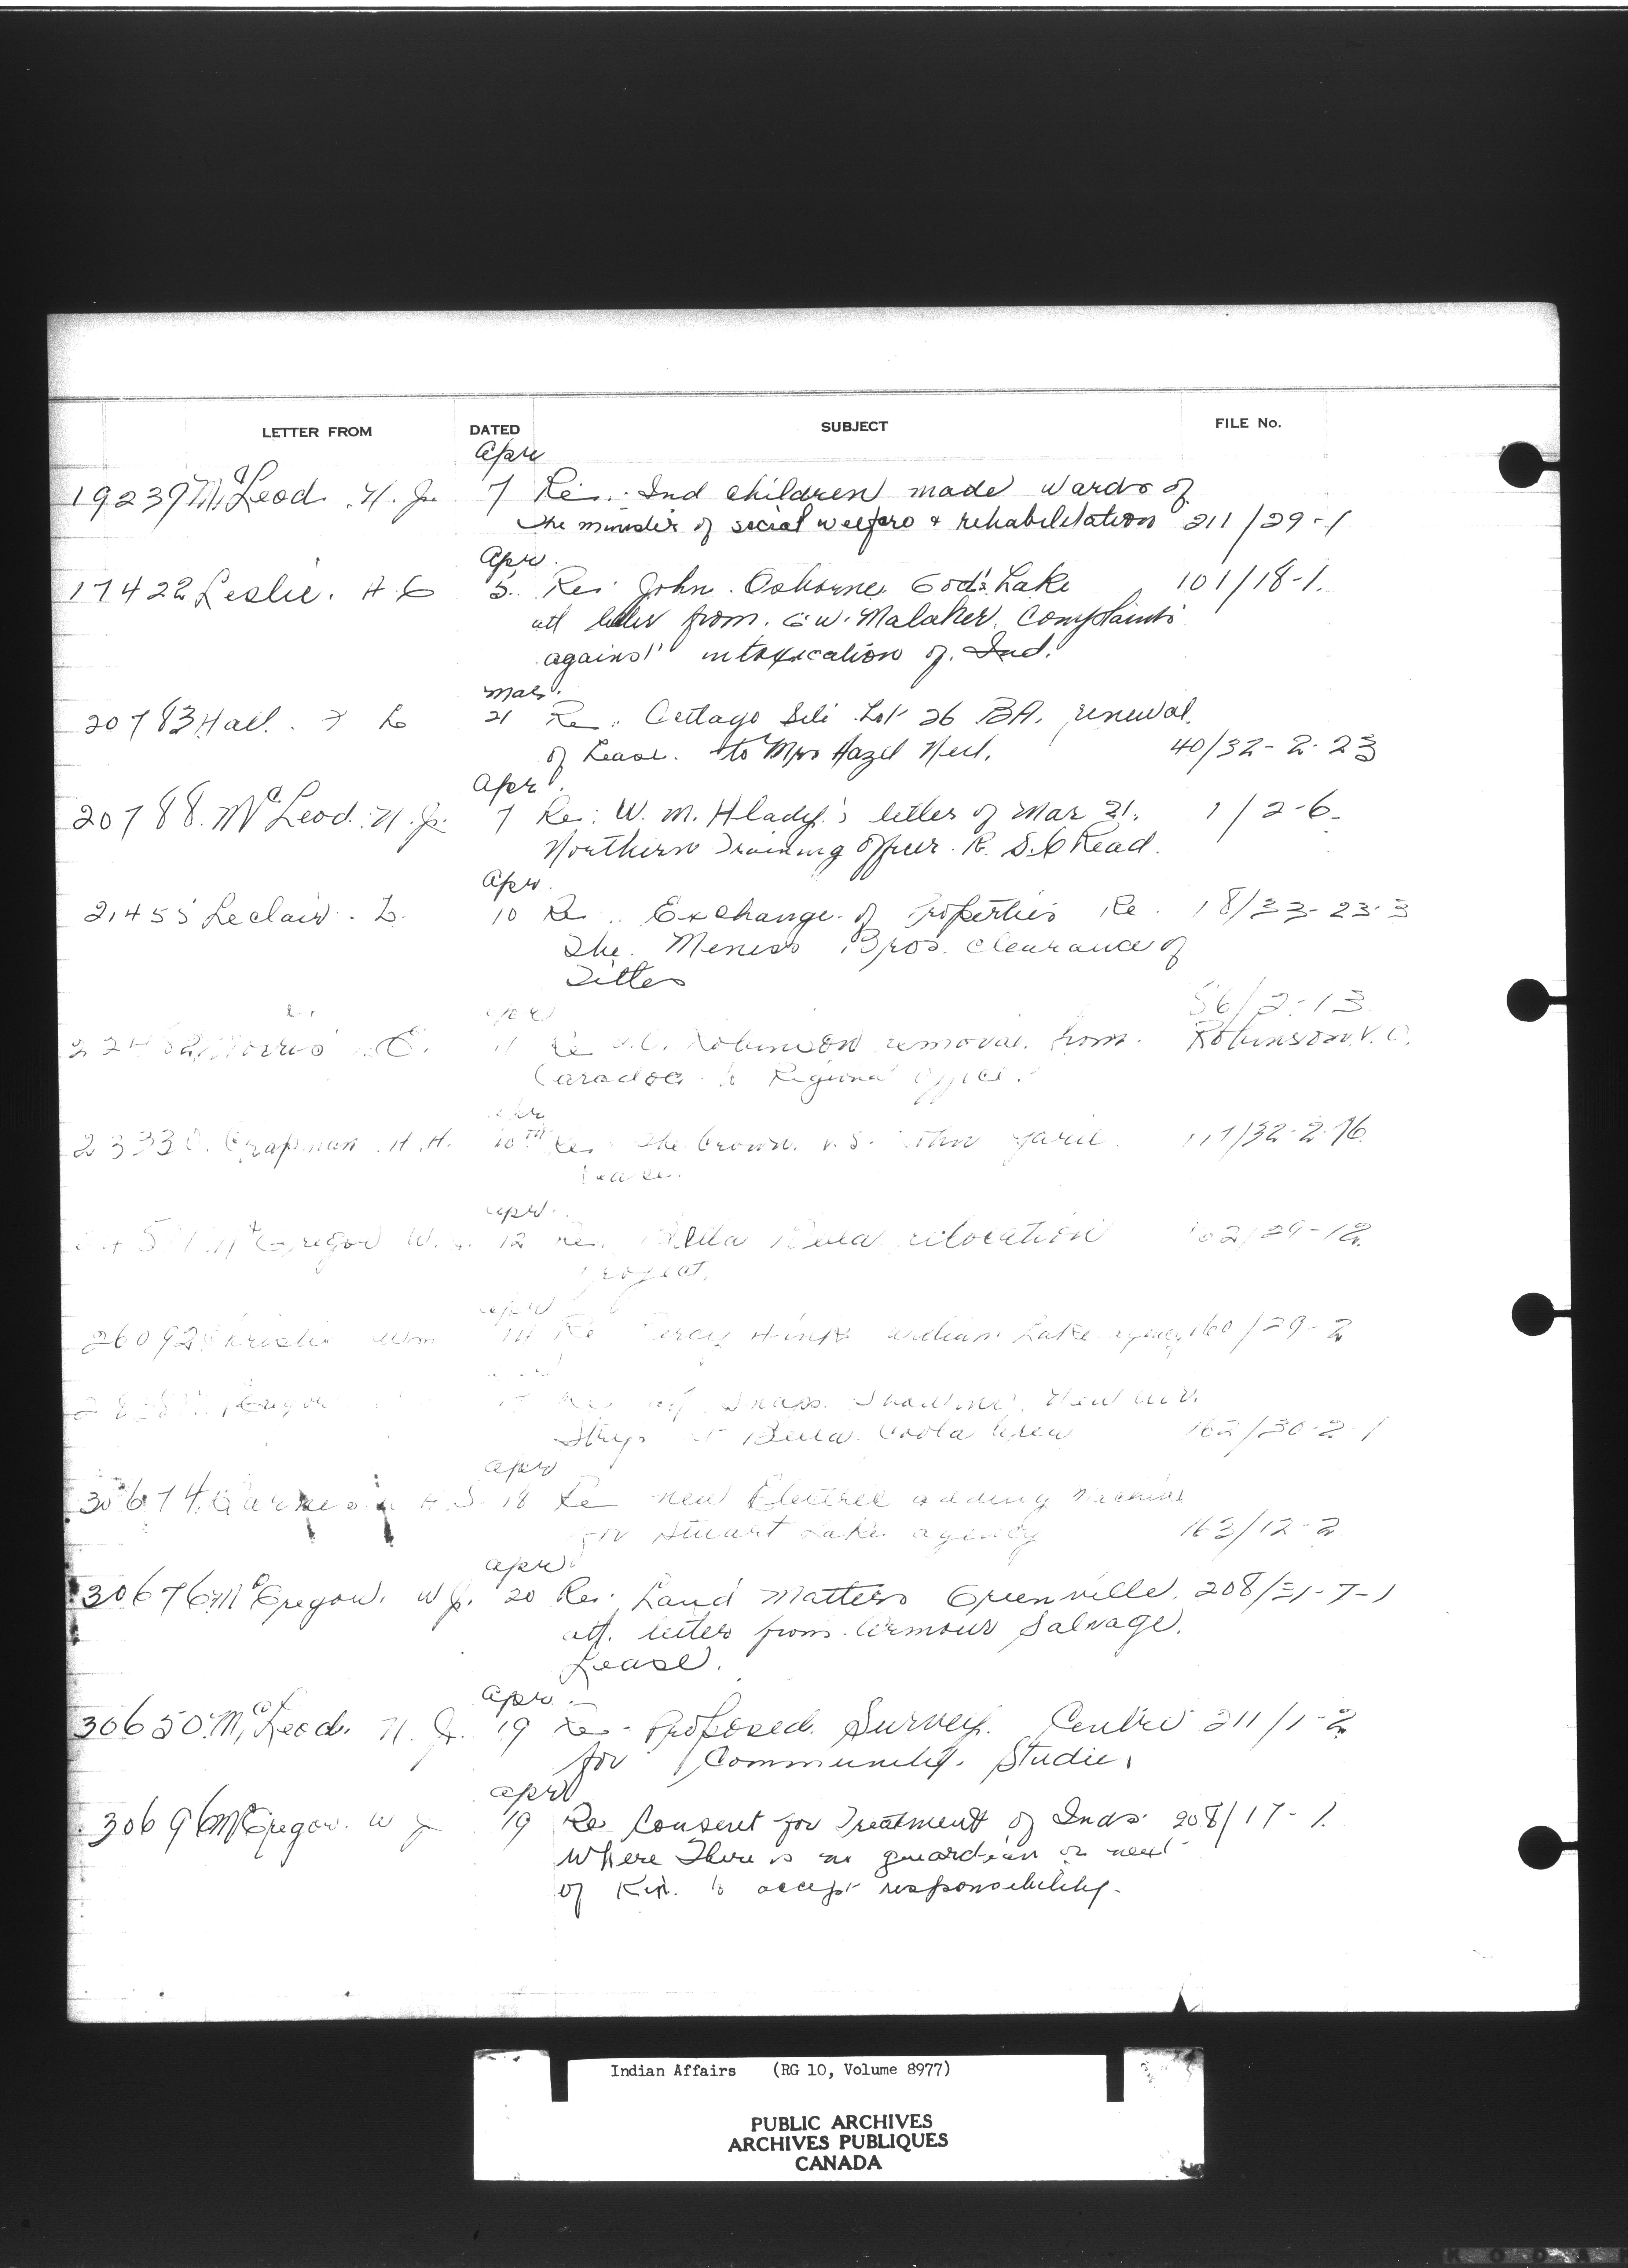 LETTER FROM DATED SUBJECT FILE No.
Apr
19239 McLeod. N. J. 7 Re: Ind children made wards of
the minister of social welfare & rehabilitation 211/29-1
Apr.
17422 Leslie. A. G 5. Re: John Osborne God's Lake 101/18-1.
att letter from. G.W. Malaher. Complaints
against intoxication of. Ind.
Mar.
20783 Hall. F L 21 Re: Cottage Site Lot 26 BA. renewal
of Lease. to Mrs Hazel 40/32-2-23
Apr.
20788. McLeod. N. J. 7 Re: W. M. Hlady's letter of Mar 21. 1/2-6.
Northern Training Officer. R. S. C Read.
Apr.
21455 Leclair. L. 10 Re: Exchange of Properties Re. 18/33-23-3
The. Meness Bros. clearance of
Titles
56/2-13
Morris E. 11 Re V.C. Robinson removal from. Robinson. V. C.
Caradoc to Regional Office.
Apr
23330. Chapman. H. H. 10TH Re The Crown. v.s. 32-2-16
Lease.
Apr.
McGregor W. J. 12 Re. Bella Bella relocation 162/29-12
project.
Apr
26092 Christie Wm 14 Re Percy Hink William Lake agency 160/29-2
Re
Strip at Bella Coola area 162/30-2-1
Apr
30674. H. S. 18 Re new Electric adding machine
for Stuart Lake agency 163/12-2
Apr.
30676 McGregor. W J. 20 Re: Land Matters Greenville. 208/31-7-1
att. letter from Armour Salvage.
Lease.
Apr.
30650. McLeod. N. J. 19 Re- Proposed Survey. Centre 211/1-2
for Community Studie.
Apr
30696 McGregor. W J 19 Re Consent for Treatment of Inds. 208/17-1.
Where There is no guardian or next
of Kin. to accept responsibility.
Indian Affairs (RG 10, Volume 8977)
PUBLIC ARCHIVES
ARCHIVES PUBLIQUES
CANADA